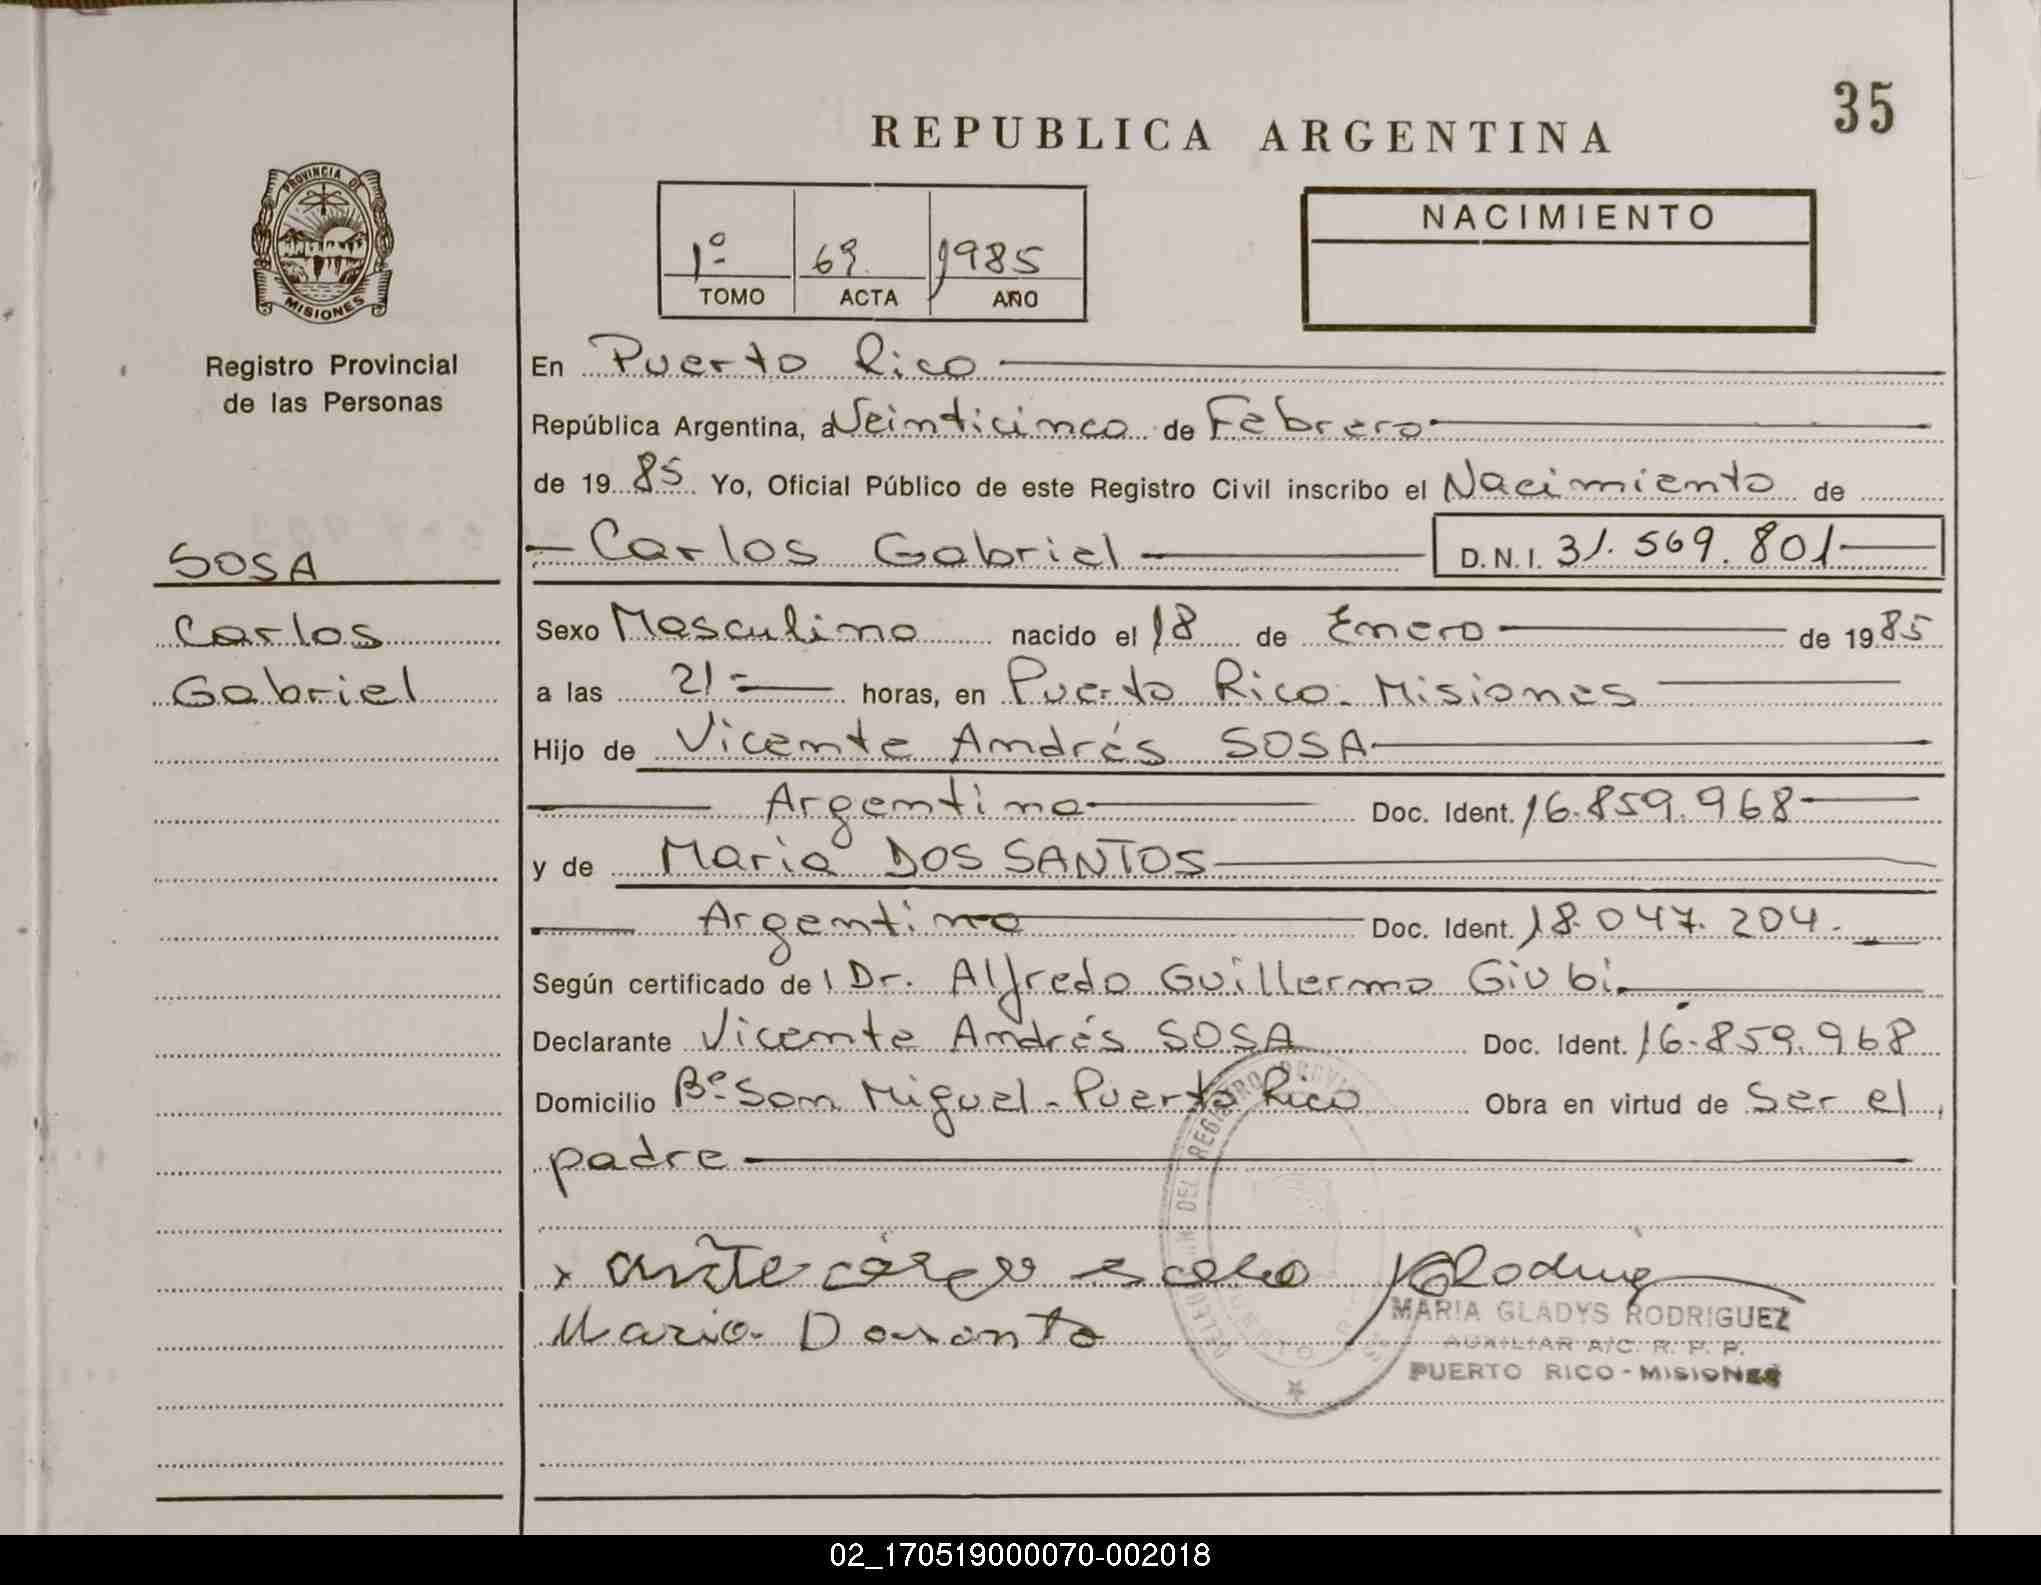 35
REPUBLICA ARGENTINA
PROVINCIA DE
MISIONES
Registro Provincial
de las Personas
1º 69. 1985
TOMO ACTA AÑO
NACIMIENTO
En Puerto Rico
República Argentina, a Veinticinco de Febrero
de 1985 Yo, Oficial Público de este Registro Civil inscribo el Nacimiento de
SOSA
Carlos
Gabriel
Carlos Gabriel D.N.I. 31.569.801
Sexo Masculino nacido el 18 de Enero de 1985
a las 21 horas, en Puerto Rico. Misiones
Hijo de Vicente Andrés SOSA
Argentino Doc. Ident. 16.859.968
y de Maria DOS SANTOS
Argentina Doc. Ident. 18.047.204.
Según certificado de l Dr. Alfredo Guillermo Giubi.
Declarante Vicente Andrés SOSA Doc. Ident. 16.859.968
Domicilio Bº San Miguel - Puerto Rico Obra en virtud de Ser el
padre
x
Maria
MARIA GLADYS RODRIGUEZ
AUXILIAR A/C. R. P. P.
PUERTO RICO - MISIONES
02_170519000070-002018